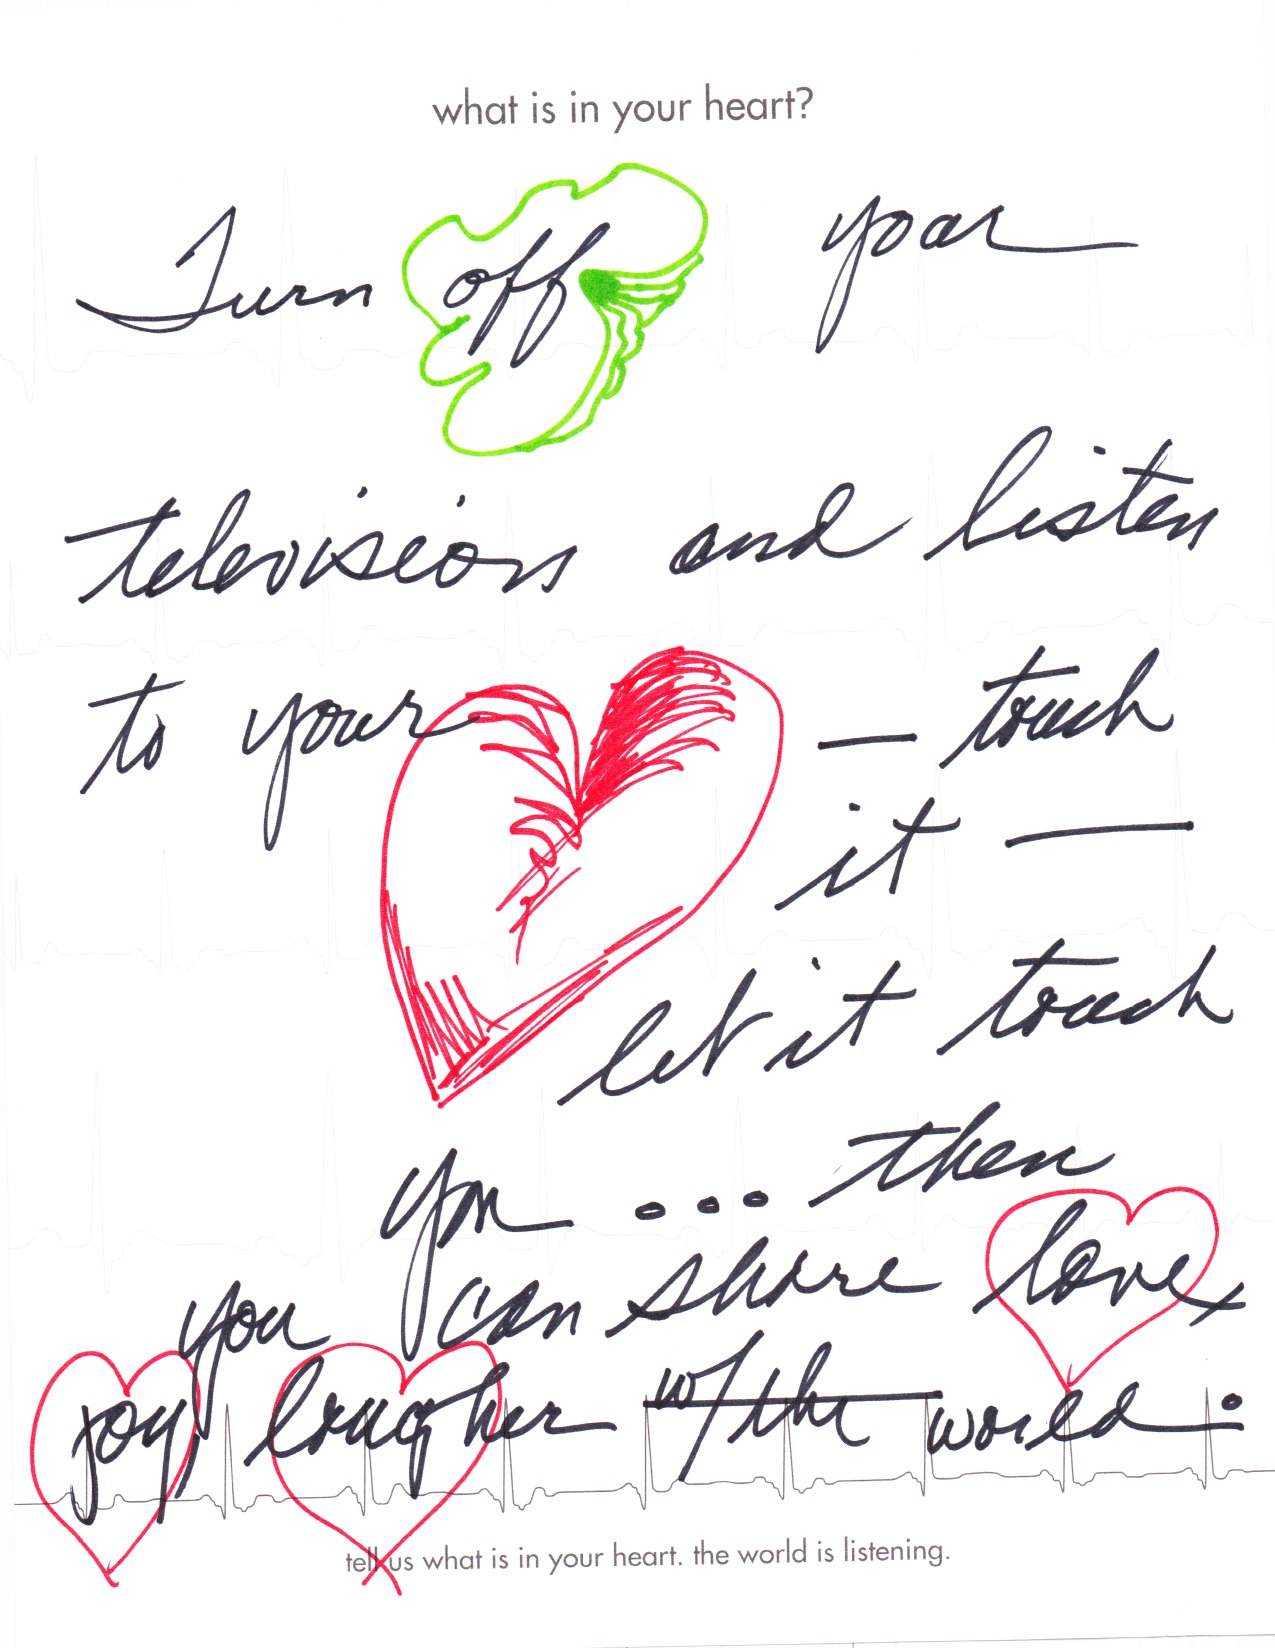 what is in your heart?
Turn off your
television and listen
to your — touch
it —
let it touch
you ... then
you can share love,
joy, laugher w/the world.
tell us what is in your heart. the world is listening.